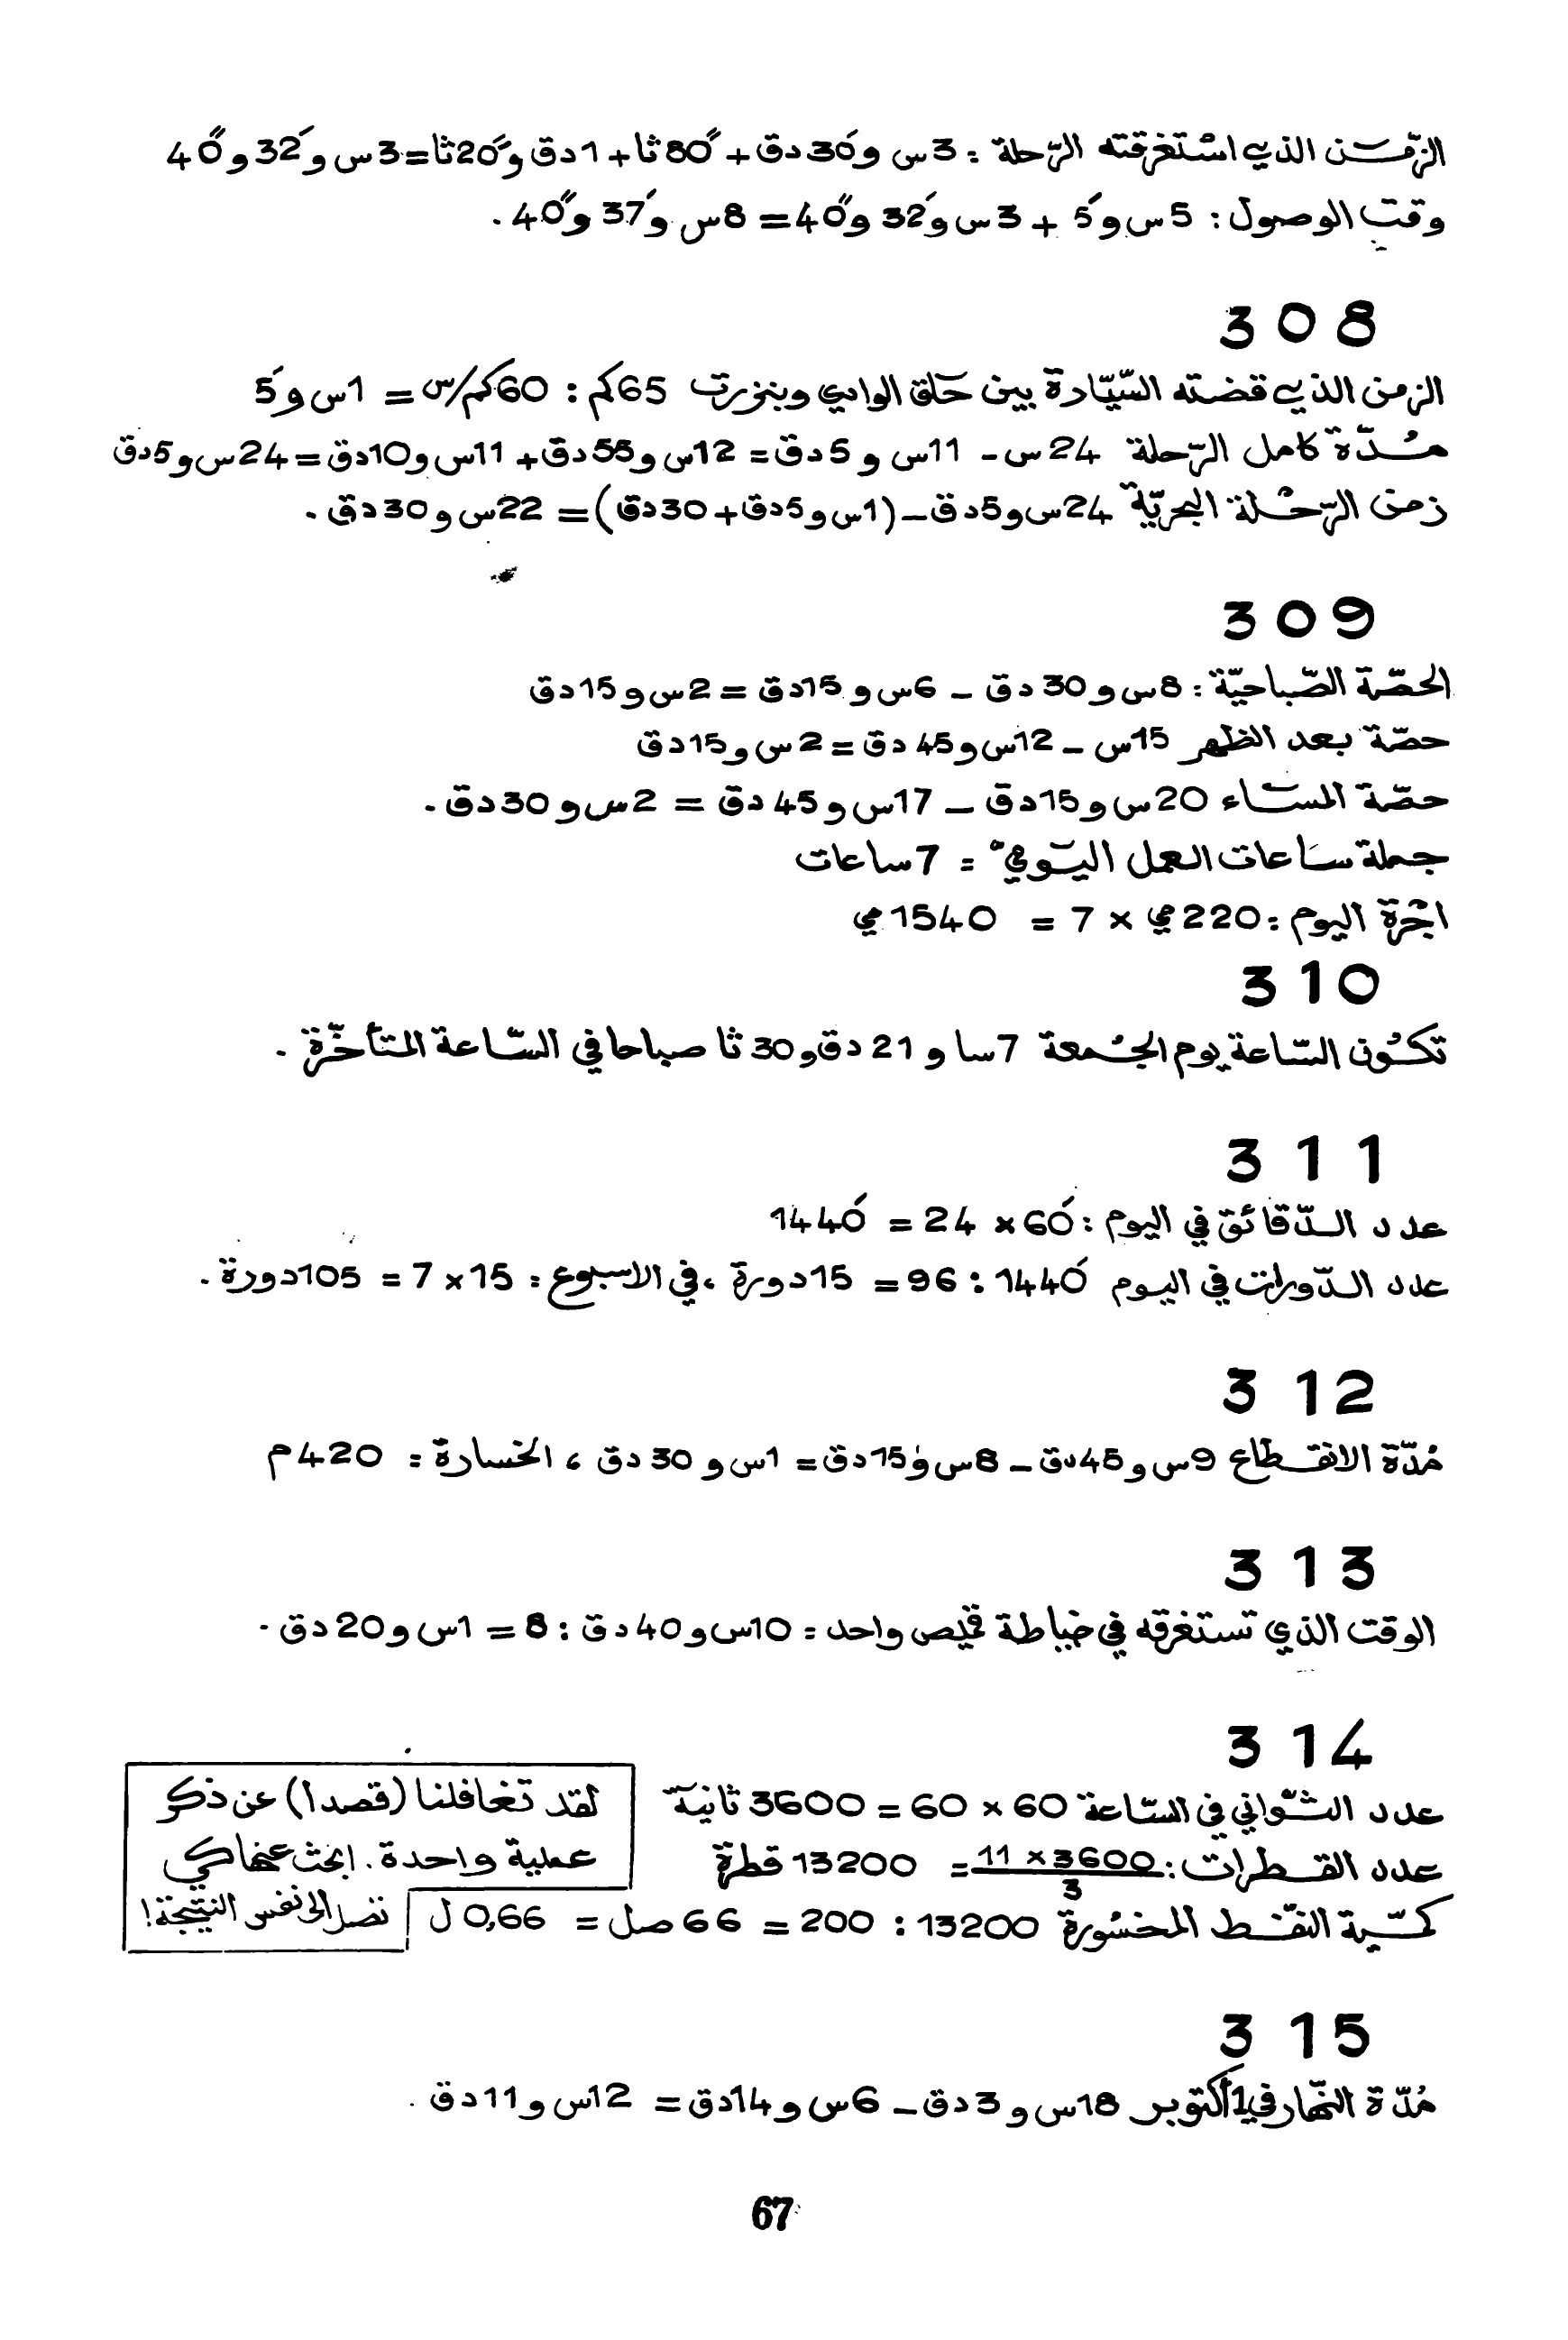 الزّمن الذي استغرقته الرّحلة : 3س و30َ دق + 80ً ثا + 1دق و20ً ثا = 3س و32َ و40ً
وقت الوصول : 5س و5َ + 3س و32َ و40ً = 8س و37َ و40ً .
308
الزمن الذي قضته السّيّارة بين حلق الوادي وبنزرت 65كم : 60كم/س = 1س و5َ
مُدّة كامل الرّحلة 24س - 11س و5دق = 12س و55دق + 11س و10دق = 24س و5دق
زمن الرّحلة البحريّة 24س و5دق - (1س و5دق + 30دق) = 22س و30دق .
309
الحصّة الصّباحيّة : 8س و30دق - 6س و15دق = 2س و15دق
حصّة بعد الظهر 15س - 12س و45دق = 2س و15دق
حصّة المساء 20س و15دق - 17س و45دق = 2س و30دق .
جملة ساعات العمل اليومي = 7ساعات
اجْرة اليوم : 220مي × 7 = 1540مي
310
تكون السّاعة يوم الجُمعة 7سا و21دق و30ثا صباحا في السّاعة المتأخّرة .
311
عدد الدّقائق في اليوم : 60َ × 24 = 1440َ
عدد الدّورات في اليوم 1440َ : 96 = 15دورة ، في الاسبوع : 15 × 7 = 105دورة .
312
مُدّة الانقطاع 9س و45دق - 8س و15دق = 1س و30دق ، الخسارة : 420م
313
الوقت الذي تستغرقه في خياطة قميص واحد : 10س و40دق : 8 = 1س و20دق .
314
عدد الثّواني في السّاعة 60 × 60 = 3600 ثانية
عدد القطرات : 11 × 3600 / 3 = 13200 قطرة
كمّية النفط المخسورة 13200 : 200 = 66صل = 0,66 ل
لقد تغافلنا (قصدا) عن ذكر
عملية واحدة . ابحث عنها كي
تصل إلى نفس النتيجة !
315
مُدّة النّهار في 1 أكتوبر 18س و3دق - 6س و14دق = 12س و11دق .
67